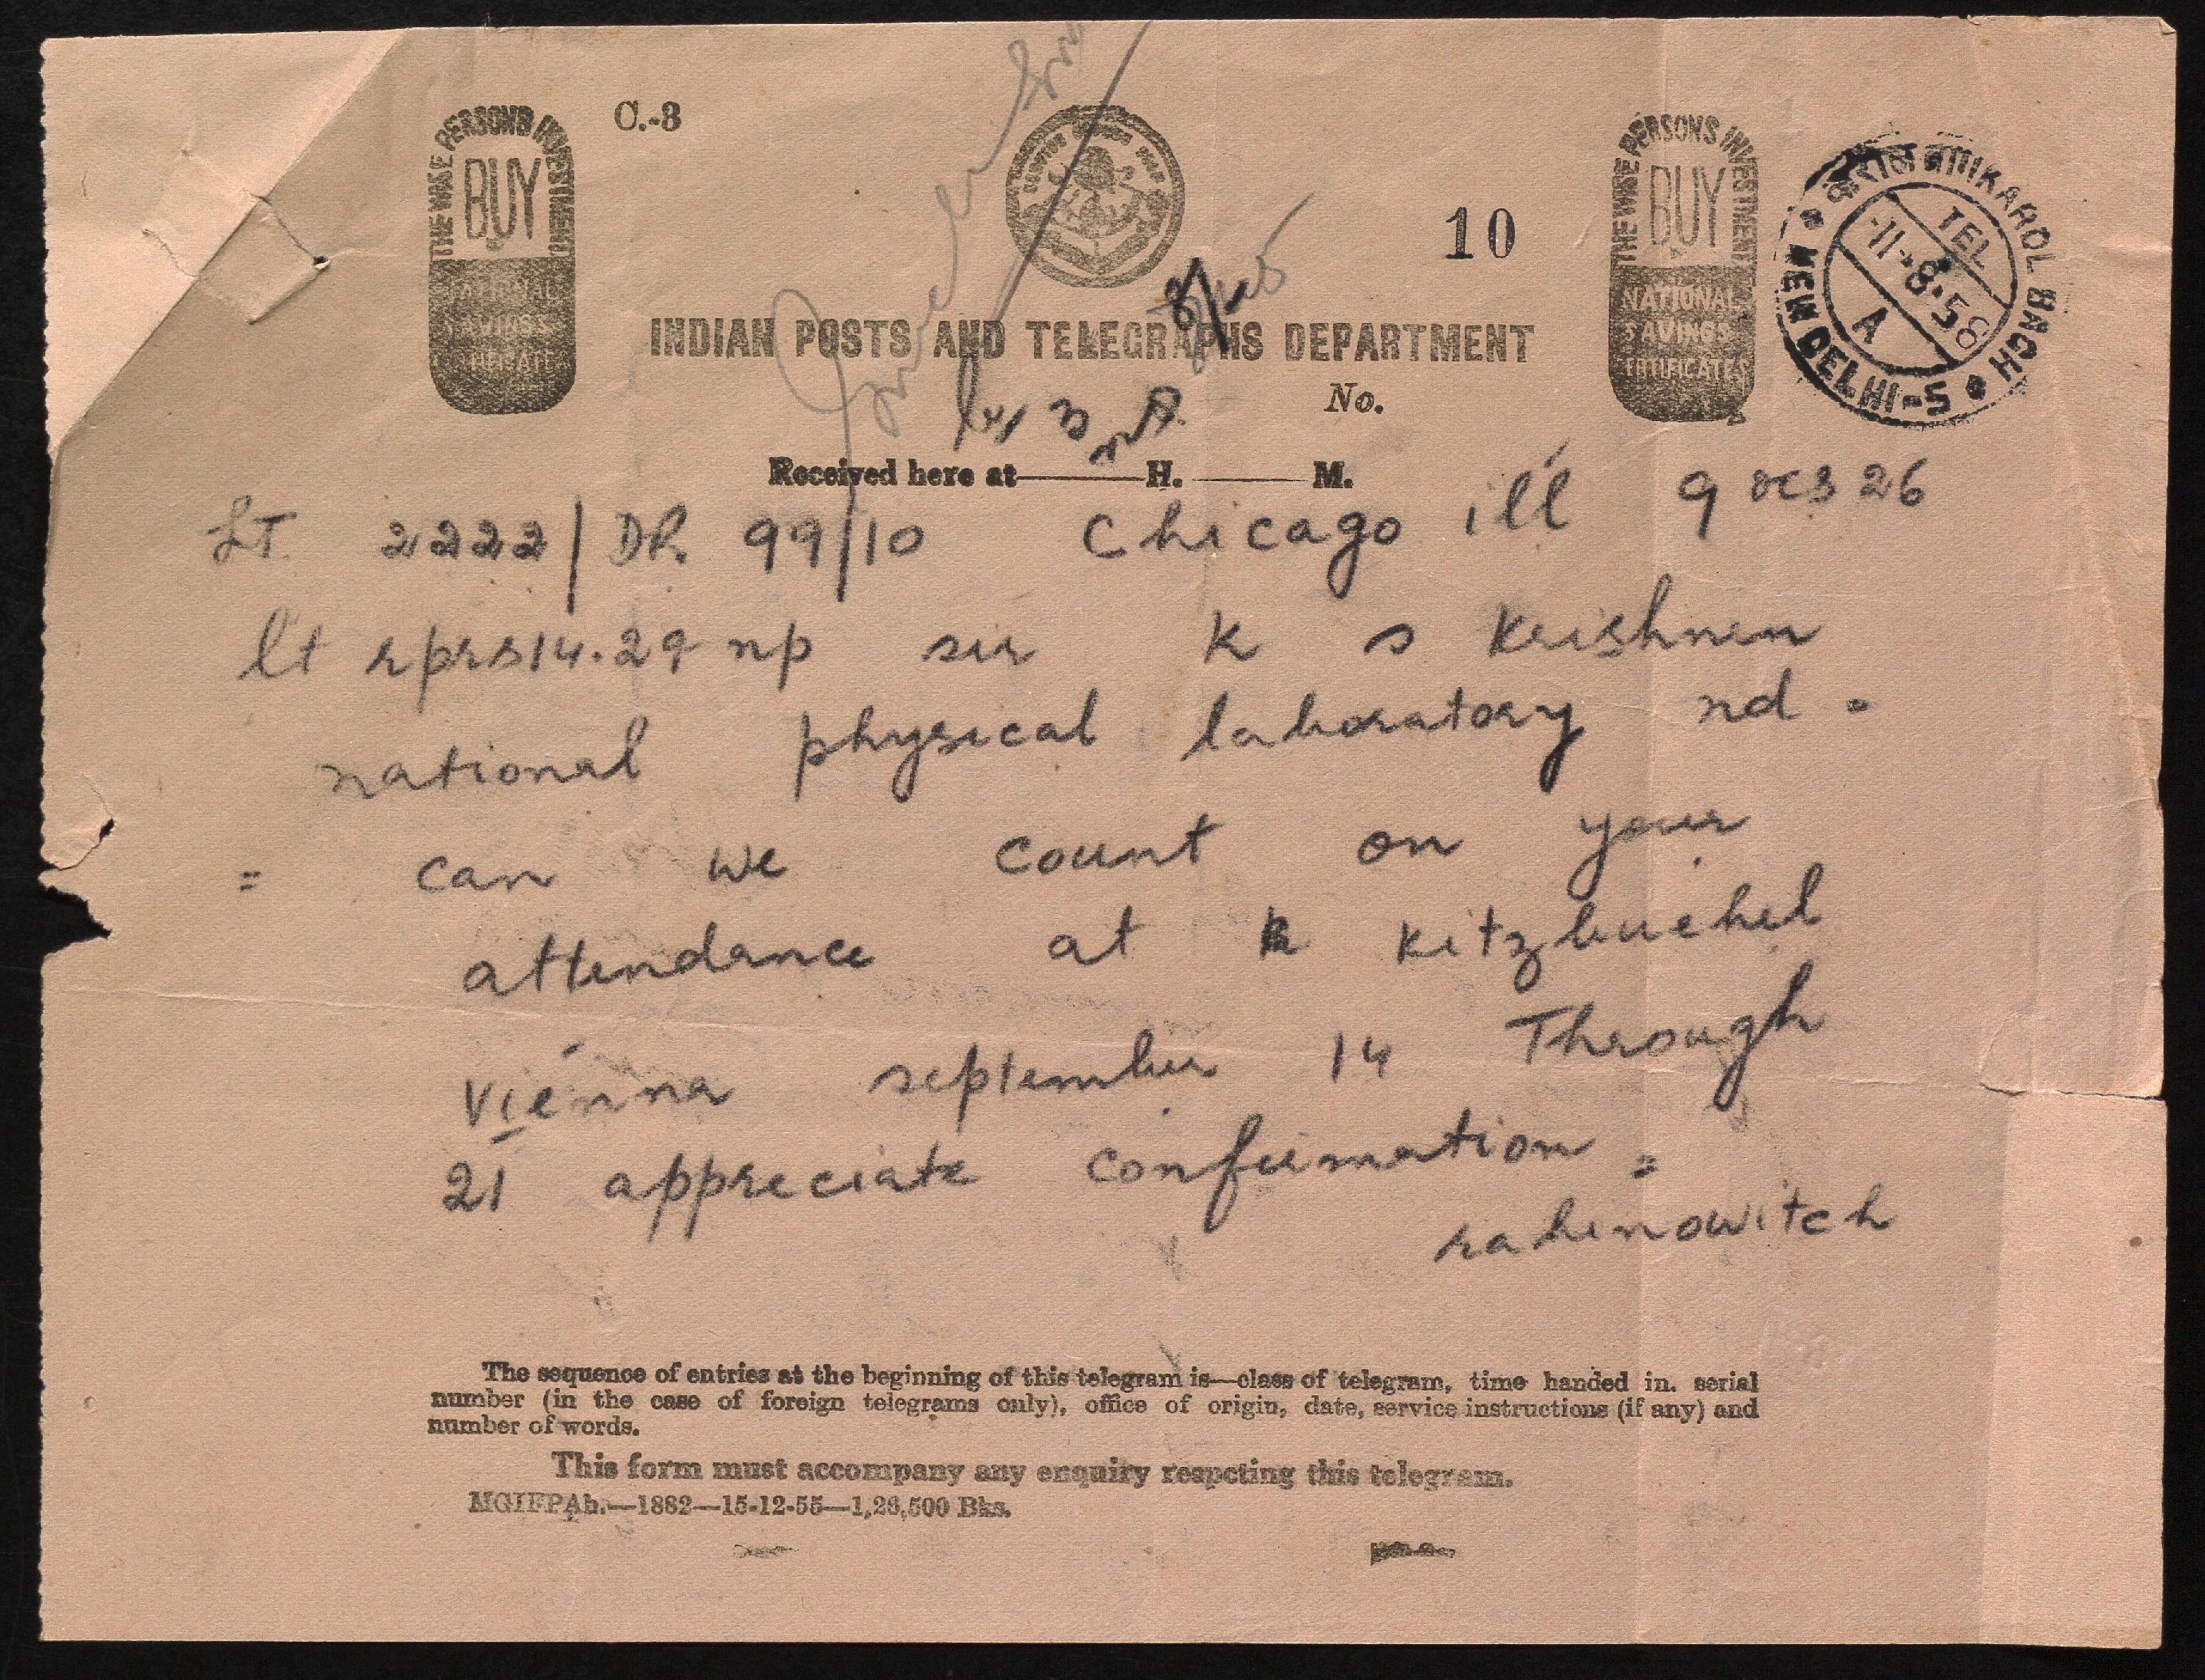 C.-3
THE WISE PERSONS INVESTMENT
BUY
NATIONAL
SAVINGS
THE WISE PERSONS INVESTMENT
BUY
NATIONAL
SAVINGS
CERTIFICATES
10
करोल बाग KAROL BAGH
NEW DELHI-5
TEL
-11-8-58
A
INDIAN POSTS AND TELEGRAPHS DEPARTMENT
No.
Received here at H. M.
LT 2222/DR 99/10 Chicago ill 9 26
lt 14.29 np sir K S Krishnan
national physical laboratory nd =
= can we count on your
attendance at Kitzbuehel
Vienna september 14 Through
21 appreciate confirmation =
rabinowitch
The sequence of entries at the beginning of this telegram is—class of telegram, time handed in. serial
number (in the case of foreign telegrams only), office of origin, date, service instructions (if any) and
number of words.
This form must accompany any enquiry respcting this telegram.
MGIFPAh.—1882—15-12-55—1,26,500 Bks.